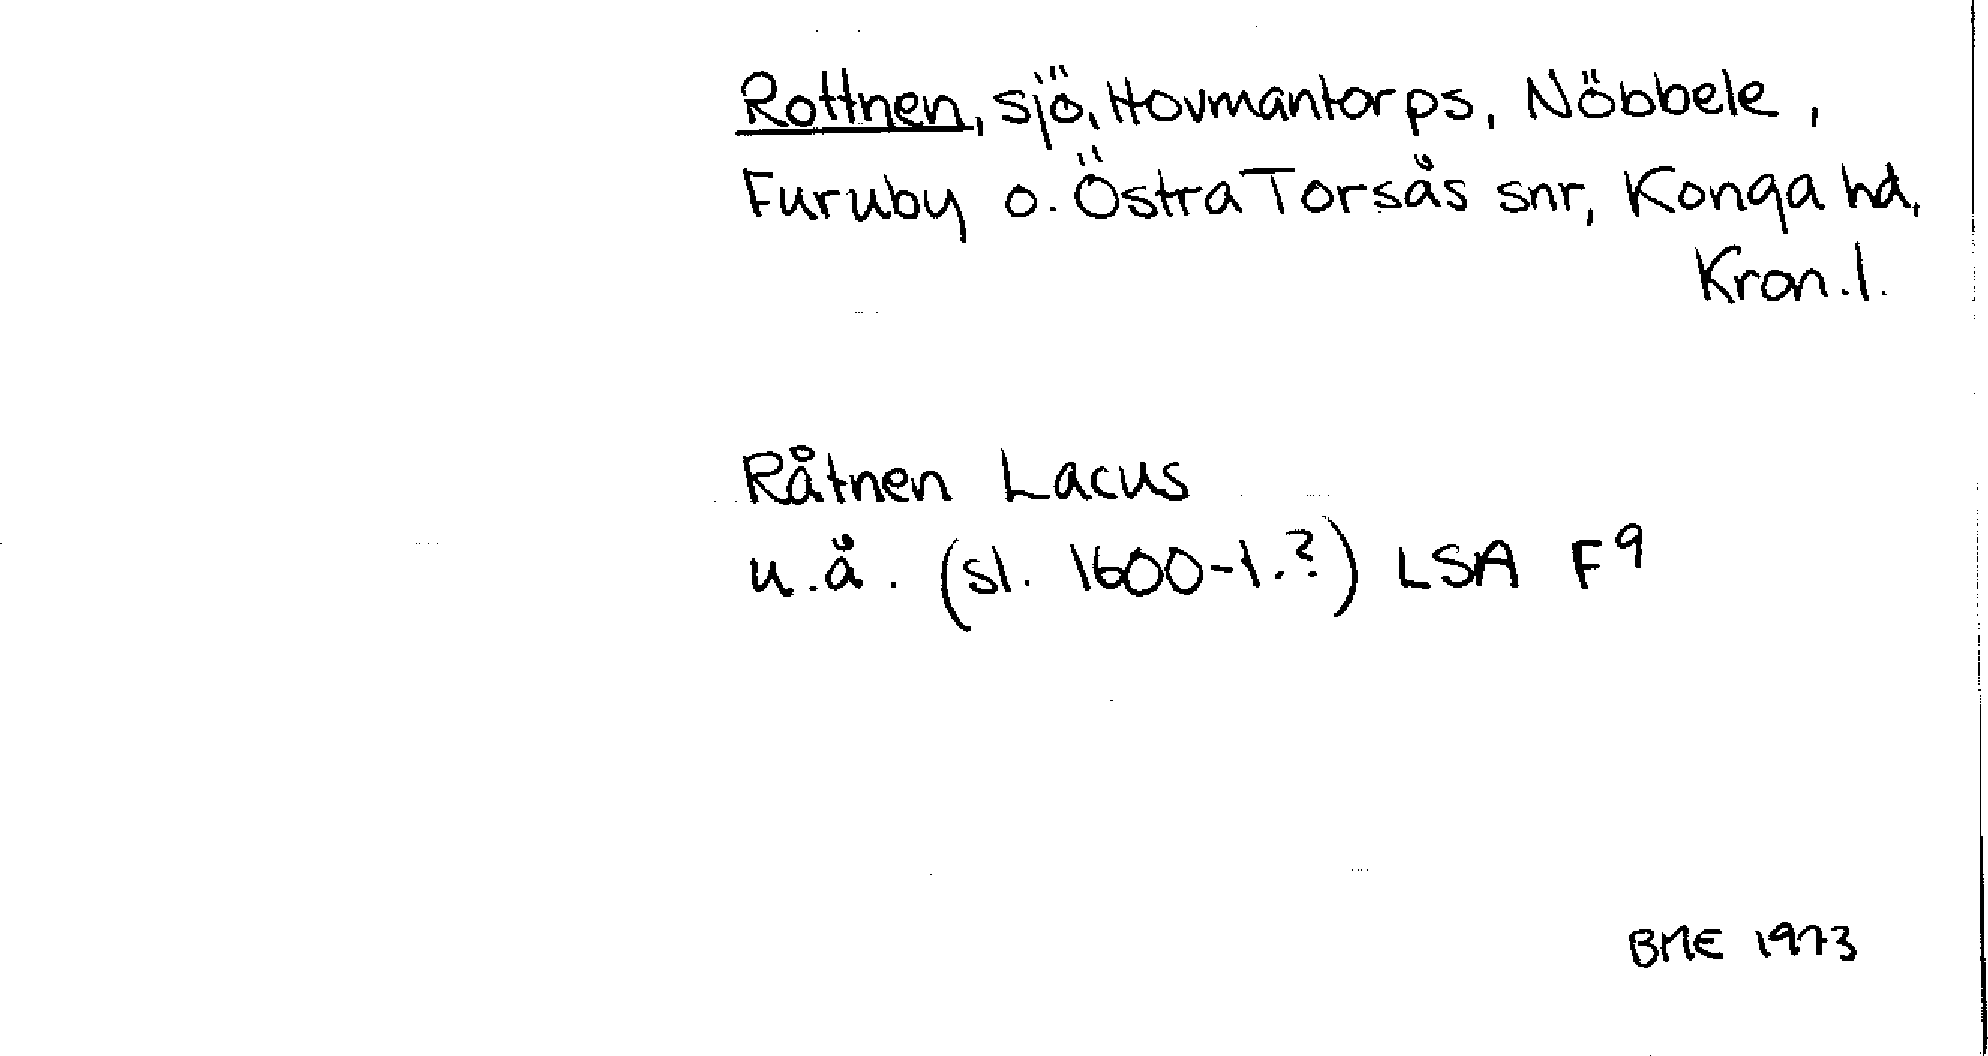 Rottnen, sjö, Hovmantorps, Nöbbele,
Furuby o. Östra Torsås snr, Konga hd,
Kron.l.
Råtnen Lacus
u.å. (sl. 1600-t.?) LSA F9
BME 1973